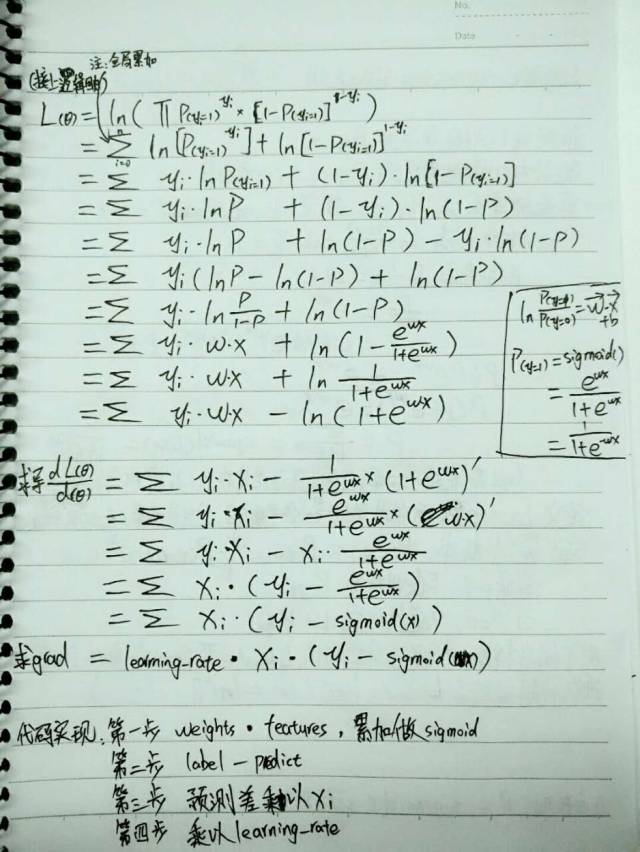 No.
Date
注:全局累加
(接上逻辑回归)
L(θ) = ln(∏ P(yi=1)^yi × [1-P(yi=1)]^1-yi)
= ∑ i=0 n ln[P(yi=1)^yi] + ln[1-P(yi=1)]^1-yi
= ∑ yi·lnP(yi=1) + (1-yi)·ln[1-P(yi=1)]
= ∑ yi·lnP + (1-yi)·ln(1-P)
= ∑ yi·lnP + ln(1-P) - yi·ln(1-P)
= ∑ yi(lnP - ln(1-P)) + ln(1-P)
= ∑ yi·ln P/1-P + ln(1-P)
= ∑ yi·w·x + ln(1- e^wx/1+e^wx)
= ∑ yi·w·x + ln 1/1+e^wx
= ∑ yi·w·x - ln(1+e^wx)
ln P(y=1)/P(y=0) = w·x
+b
P(y=1) = sigmoid()
= e^wx/1+e^wx
= 1/1+e^-wx
求导 dL(θ)/d(θ) = ∑ yi·xi - 1/1+e^wx × (1+e^wx)'
= ∑ yi·xi - e^wx/1+e^wx × (w·x)'
= ∑ yi·xi - xi· e^wx/1+e^wx
= ∑ xi·(yi - e^wx/1+e^wx)
= ∑ xi·(yi - sigmoid(x))
求grad = learning-rate·xi·(yi - sigmoid(wx))
代码实现:第一步 weights·features,累加做sigmoid
第二步 label-predict
第三步 预测差乘以xi
第四步 乘以learning-rate